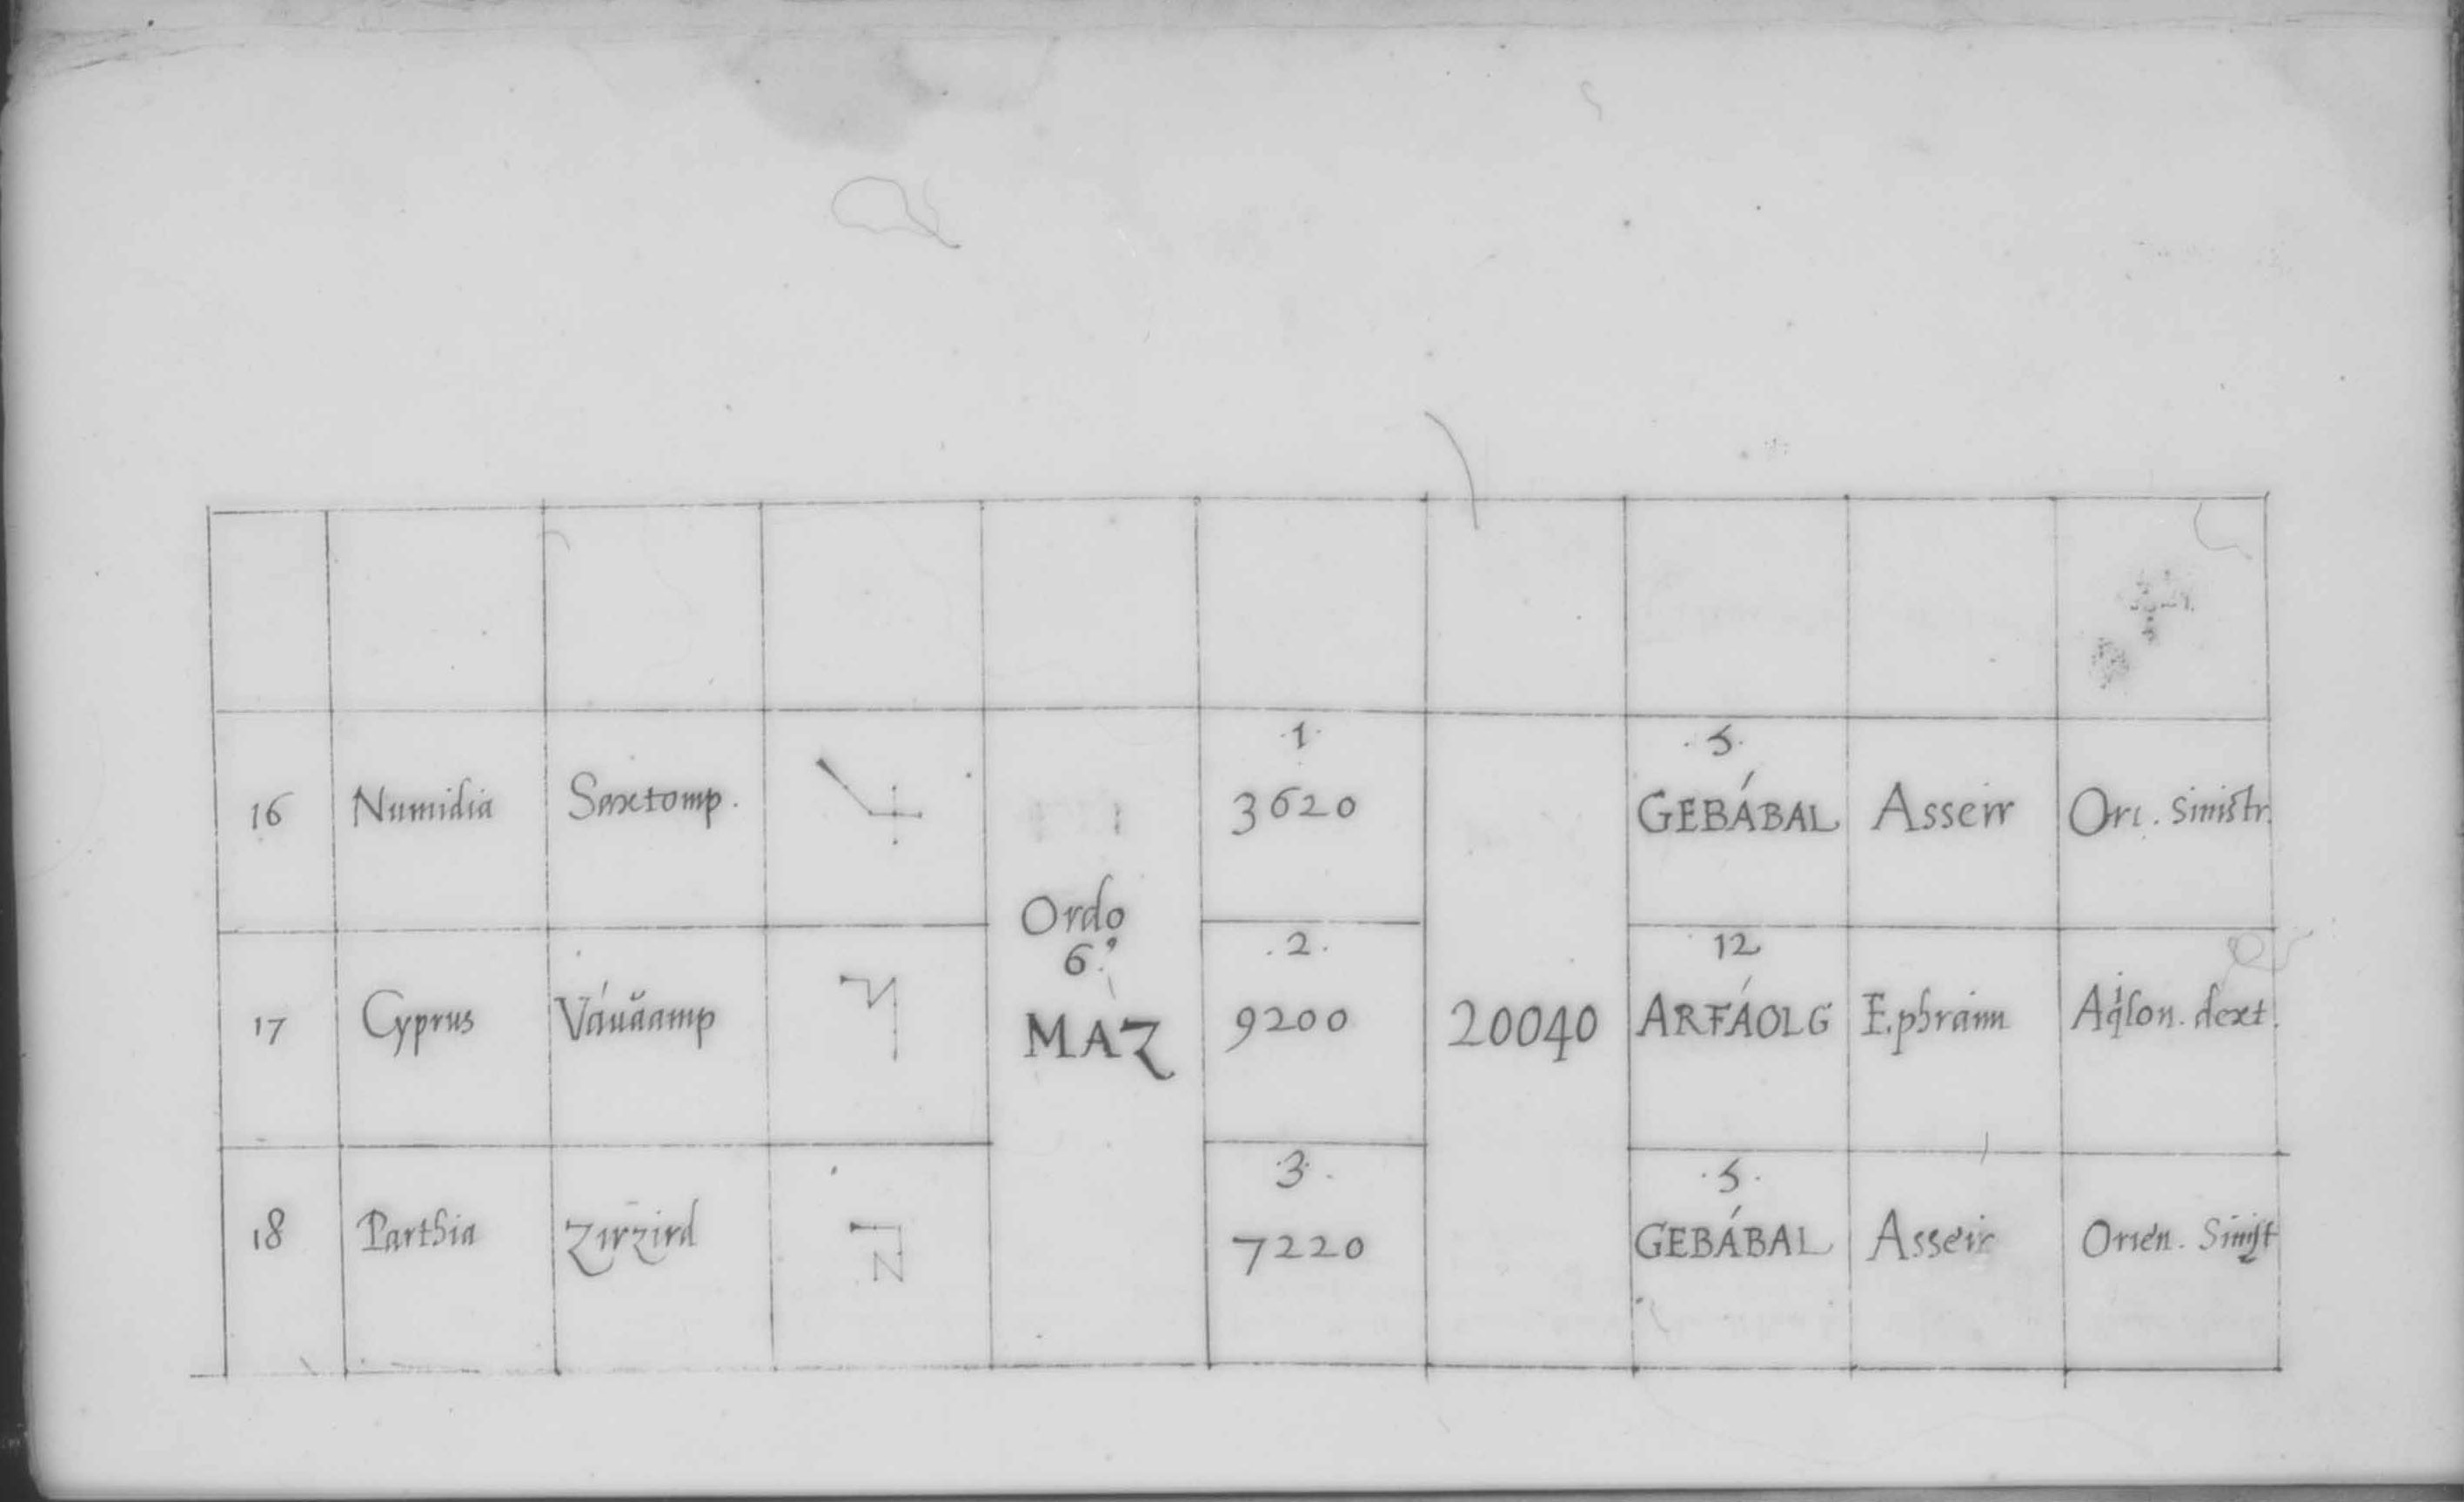 16 Numidia Saxtomp. 1. 3620 .5. GEBÁBAL Asseir Ori. Sinistr.
Ordo
6.°
MAZ
17 Cyprus Váuăamp .2. 9200 20040 12 ARFÁOLG Ephraim Aq́lon. dext.
18 Parthia Zirzird 3. 7220 .5. GEBÁBAL Asseir Orien. Sinist